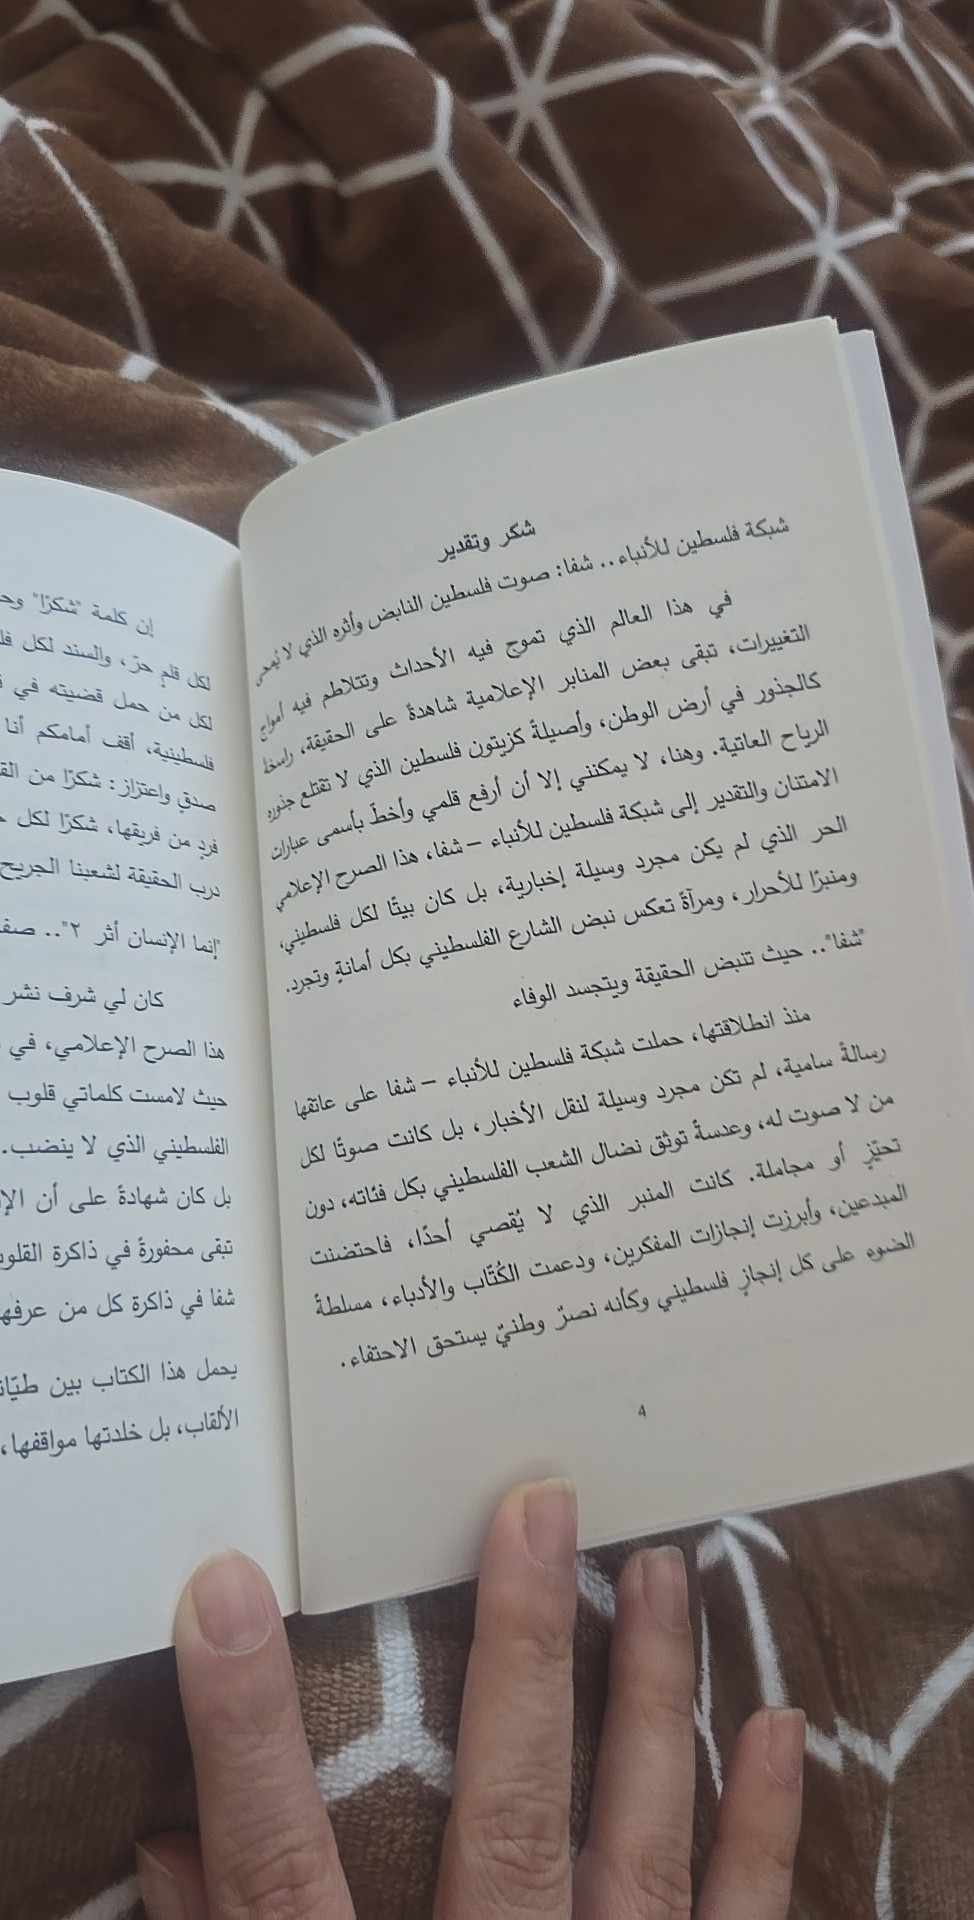 شكر وتقدير
شبكة فلسطين للأنباء.. شفا: صوت فلسطين النابض وأثره الذي لا يُمحى
في هذا العالم الذي تموج فيه الأحداث وتتلاطم فيه أمواج
التغييرات، تبقى بعض المنابر الإعلامية شاهدةً على الحقيقة، راسخة
كالجذور في أرض الوطن، وأصيلةً كزيتون فلسطين الذي لا تقتلع جذوره
الرياح العاتية. وهنا، لا يمكنني إلا أن أرفع قلمي وأخطّ بأسمى عبارات
الامتنان والتقدير إلى شبكة فلسطين للأنباء – شفا، هذا الصرح الإعلامي
الحر الذي لم يكن مجرد وسيلة إخبارية، بل كان بيتًا لكل فلسطيني،
ومنبرًا للأحرار، ومرآةً تعكس نبض الشارع الفلسطيني بكل أمانةٍ وتجرد.
"شفا".. حيث تنبض الحقيقة ويتجسد الوفاء
منذ انطلاقتها، حملت شبكة فلسطين للأنباء – شفا على عاتقها
رسالةً سامية، لم تكن مجرد وسيلة لنقل الأخبار، بل كانت صوتًا لكل
من لا صوت له، وعدسةً توثق نضال الشعب الفلسطيني بكل فئاته، دون
تحيّزٍ أو مجاملة. كانت المنبر الذي لا يُقصي أحدًا، فاحتضنت
المبدعين، وأبرزت إنجازات المفكرين، ودعمت الكُتّاب والأدباء، مسلطةً
الضوء على كل إنجازٍ فلسطيني وكأنه نصرٌ وطنيٌ يستحق الاحتفاء.
4
إن كلمة "شكرًا"
لكل قلمٍ حرّ، والسند لكل
لكل من حمل قضيته في
فلسطينية، أقف أمامكم أنا
صدقٍ واعتزاز: شكرًا من
فردٍ من فريقها، شكرًا لكل
درب الحقيقة لشعبنا الجريح
"إنما الإنسان أثر ٢"..
كان لي شرف نشر
هذا الصرح الإعلامي، في
حيث لامست كلماتي قلوب
الفلسطيني الذي لا ينضب.
بل كان شهادةً على أن
تبقى محفورةً في ذاكرة
شفا في ذاكرة كل من
يحمل هذا الكتاب بين
الألقاب، بل خلدتها مواقفها،